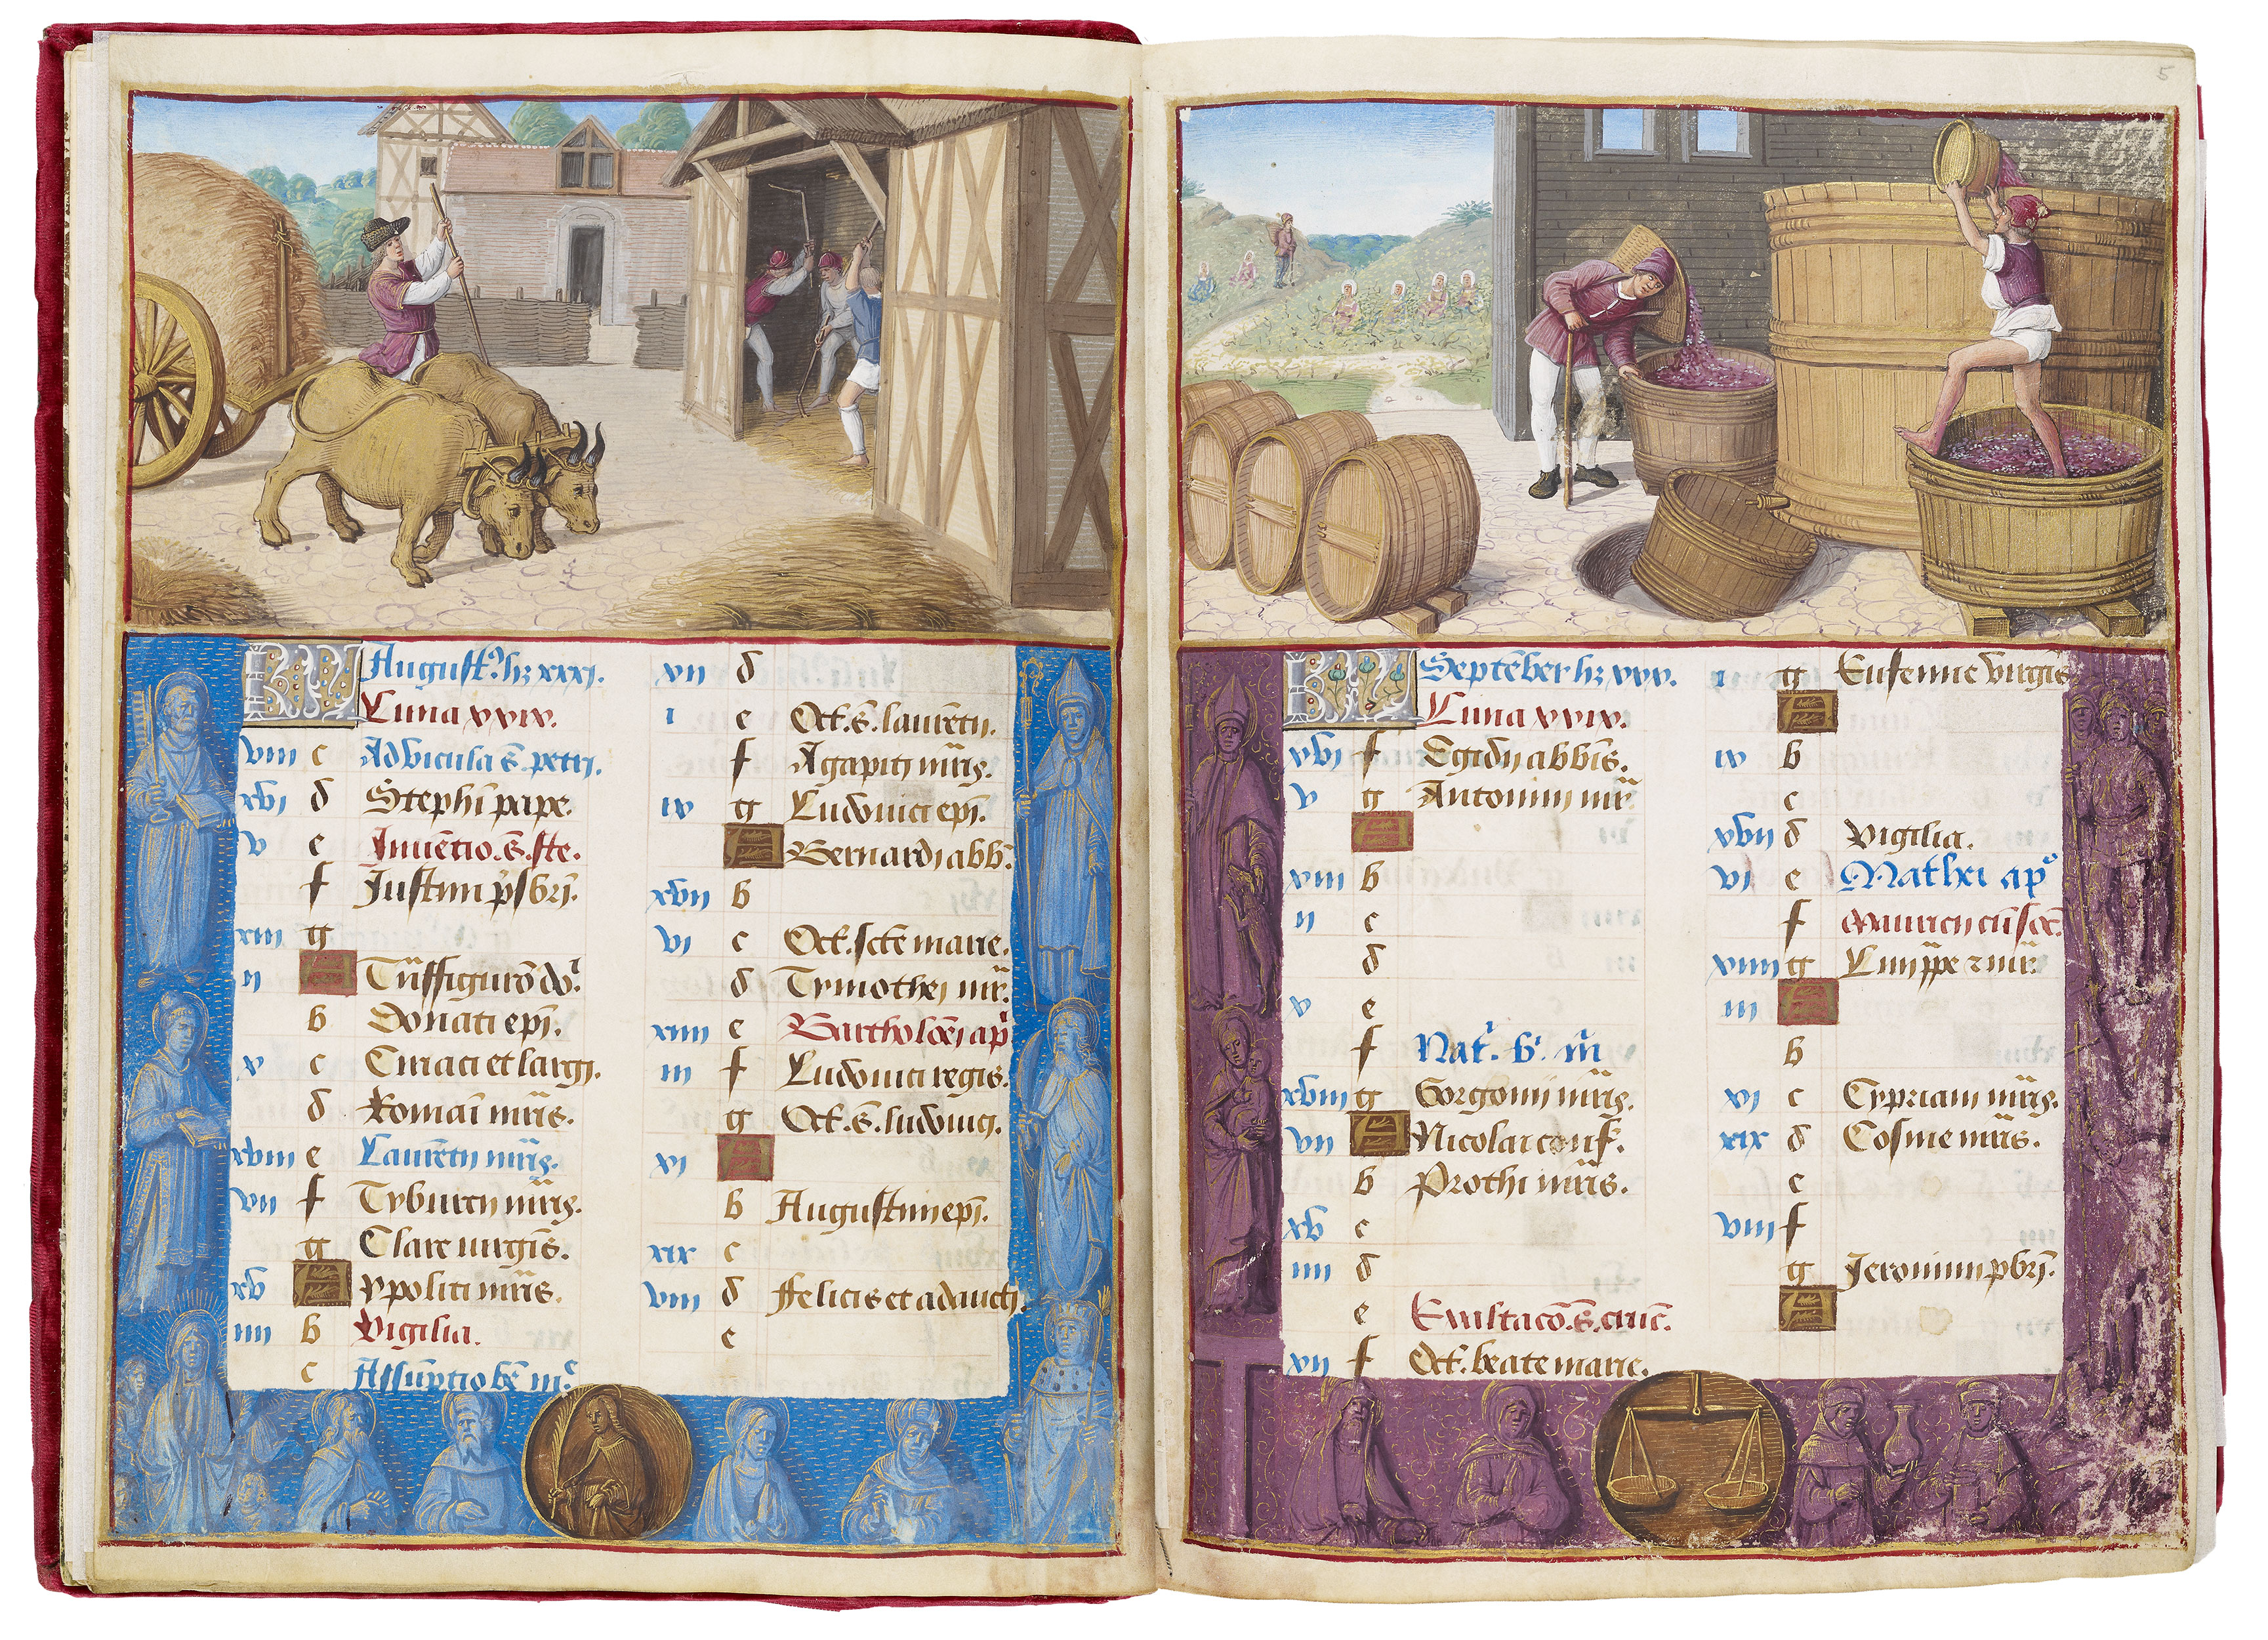 KL Augustꝰ hꝫ xxxi.
Luna xxix.
viii c Advincula s̄. petri.
xvi d Stephī pape.
v e Inuētio. s̄. ste.
f Iustini p̄sbrī.
xiii g
ii A Trāsfigurō dōⁱ.
b Donati epī.
x c Ciriaci et largi.
d Romaī mr̄is.
xviii e Laurētii mr̄is.
vii f Tyburcii mr̄is.
g Clare uirgīs.
xv A Ypoliti mr̄is.
iiii b Vigilia.
c Assūptio bē mᵉ.
xii d
i e Oct. s̄. laurētii.
f Agapiti mr̄is.
ix g Ludouici epī.
A Bernardi abb̄.
xvii b
vi c Oct. scte marie.
d Tymothei mr̄.
xiiii e Bartholōei ap̄
iii f Ludouici regis.
g Oct. s̄. ludouici.
xi A
b Augustini epī.
xix c
viii d Felicis et adaucti.
e
5
KL Septēber hꝫ xxx.
Luna xxix.
xvi f Egidii abbīs.
v g Antonini mr̄
A
xiii b
ii c
d
x e
f Nat. b̄. m̄
xviii g Gorgonii mr̄is.
vii A Nicolai conf̄.
b Prothi mr̄is.
xv c
iiii d
e Exultacō. s̄. cruc̄.
xii f Oct. beate marie.
i g Eufemie virgīs
A
ix b
c
xvii d Vigilia.
vi e Mathei ap̄
f Mauricii cū soc̄.
xiiii g
iii A
b
xi c Cypriani mr̄is.
xix d Cosme mr̄is.
e
viii f
g Jeronimi pbrī.
A